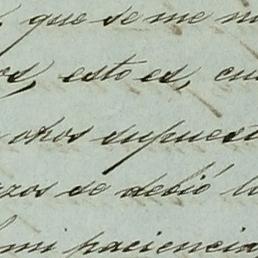 , que se me m
os, esto es, cu
otros supuest
zos se debió l
mi paciencia